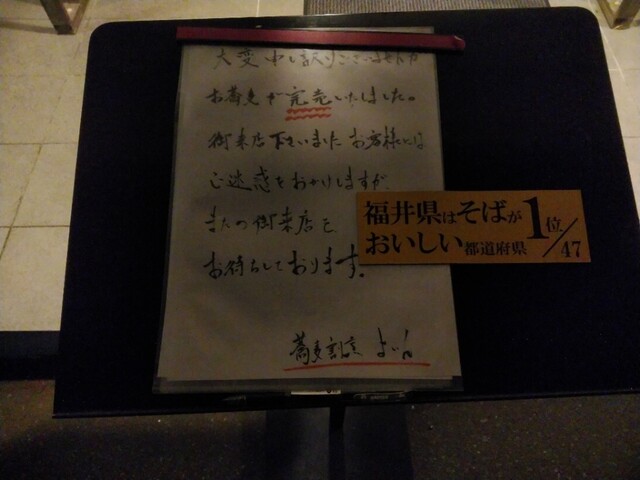 大変申し訳ございませんが
お蕎麦が完売いたしました。
御来店下さいましたお客様には
ご迷惑をおかけしますが、
またの御来店を
お待ちしております。
蕎麦割烹
福井県はそばが
おいしい都道府県
1位/47